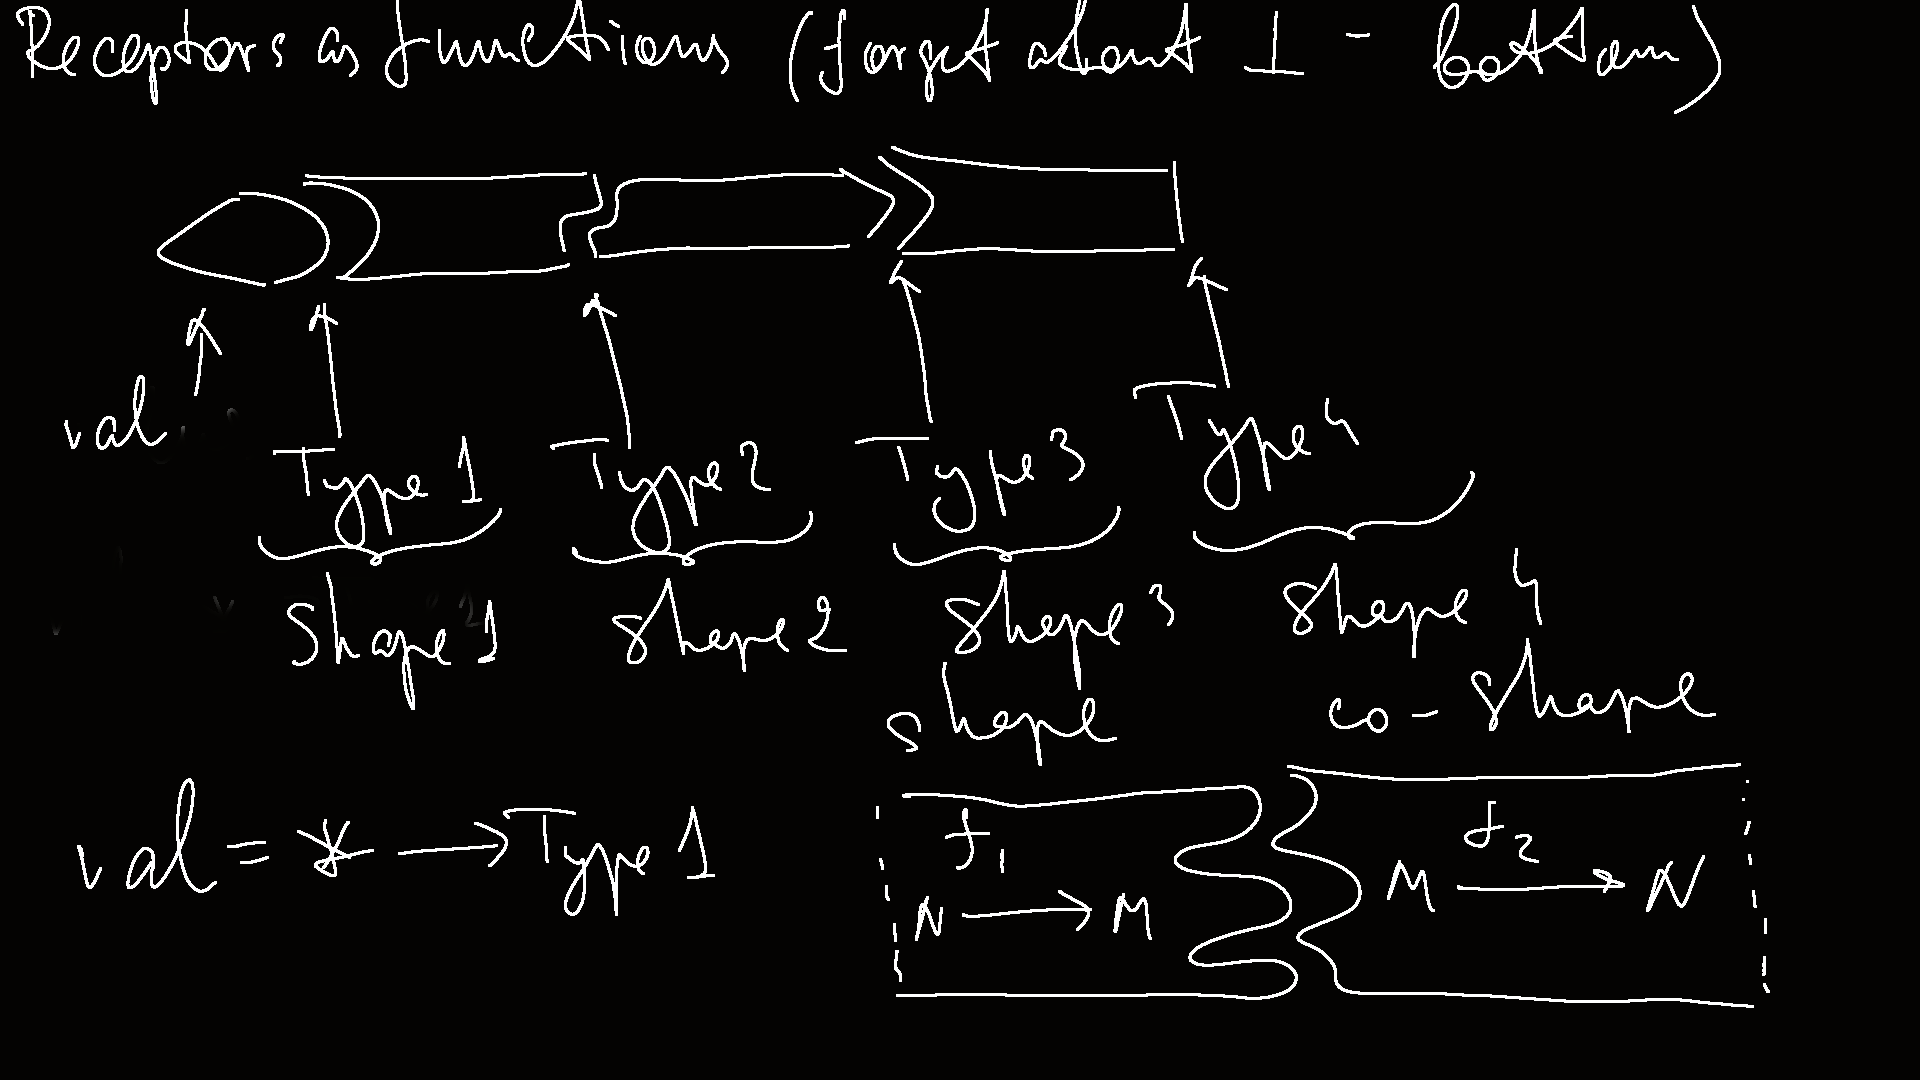 Receptors as functions (forget about ⊥ - bottom)
val
Type 1 Type 2 Type 3 Type 4
Shape 1 shape 2 shape 3 shape 4
shape co-shape
val = * → Type 1
f₁ f₂
N → M M → N